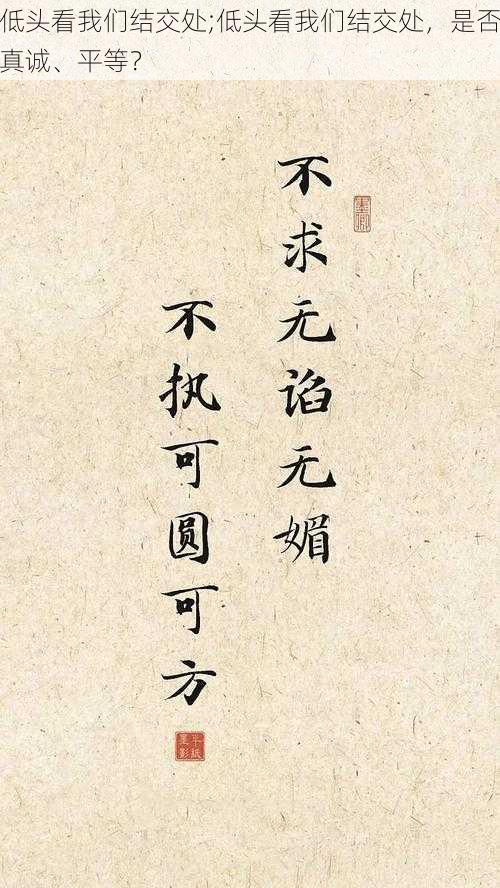 低头看我们结交处;低头看我们结交处，是否
真诚、平等？
不求无谄无媚
不执可圆可方
半纸
墨影